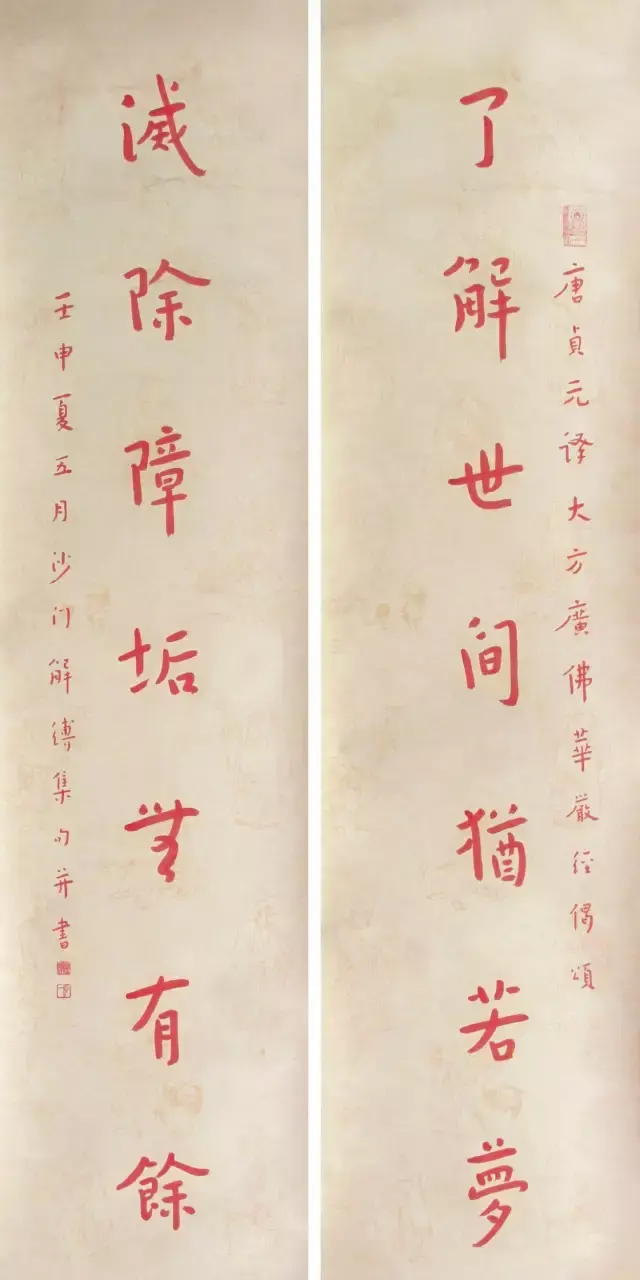 唐貞元译大方廣佛華厳經偈頌
了解世间猶若夢
滅除障垢無有餘
壬申夏五月沙门解縛集句并書